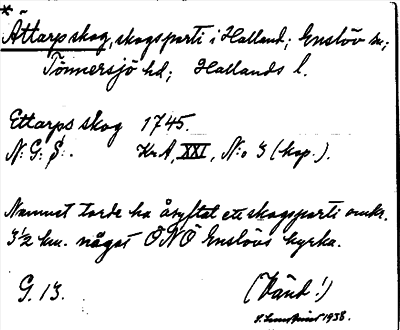 * Ättarpskog, skogsparti i Halland; Enslöv sn;
Tönnersjö hd; Hallands l.
Ettarps skog 1745.
N: G: S: KrA, XXI, N:o 3 (kop.).
Namnet torde ha åsyftat ett skogsparti omkr.
3½ km. något ONO Enslövs kyrka.
G. 13. (Vänd!)
1938.